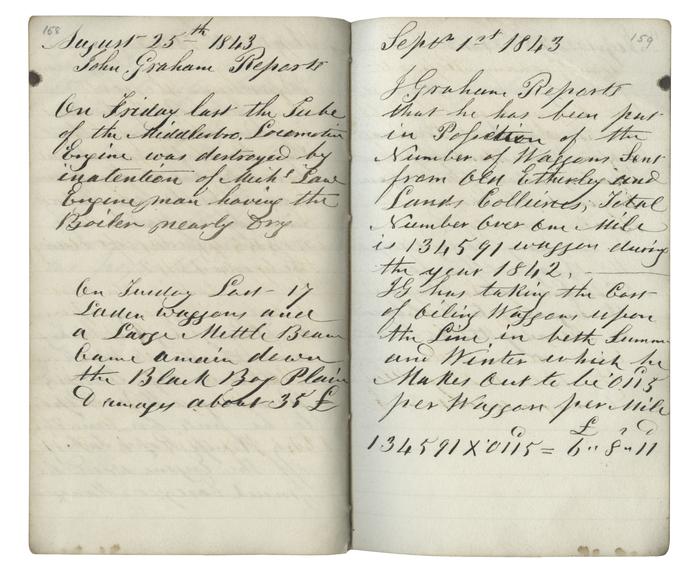 158
August 25th 1843
John Graham Reports
On Friday last the Tube
of the Middlesbro. Locomotive
Engine was destroyed by
inatention of Mich.l Law
Engine man having the
Boiler nearly Dry
On Tuesday Last 17
Laden waggons and
a Large Mettle Beam
Came amain down
the Black Boy Plain
Damages about 35 £
159
Sept.r 1st 1843
J Graham Reports
that he has been put
in Possession of the
Number of Waggons Sent
from Old Etherley and
Lands Collieries, Total
Number over one Mile
is 134591 waggon during
the year 1842.
JG has taking the Cost
of Oeling Waggons upon
the Line in both Summer
and Winter which he
Makes Out to be '0115
per Waggon per Mile
£ s d
134591 X '0115 d = 6 " 8 " 11